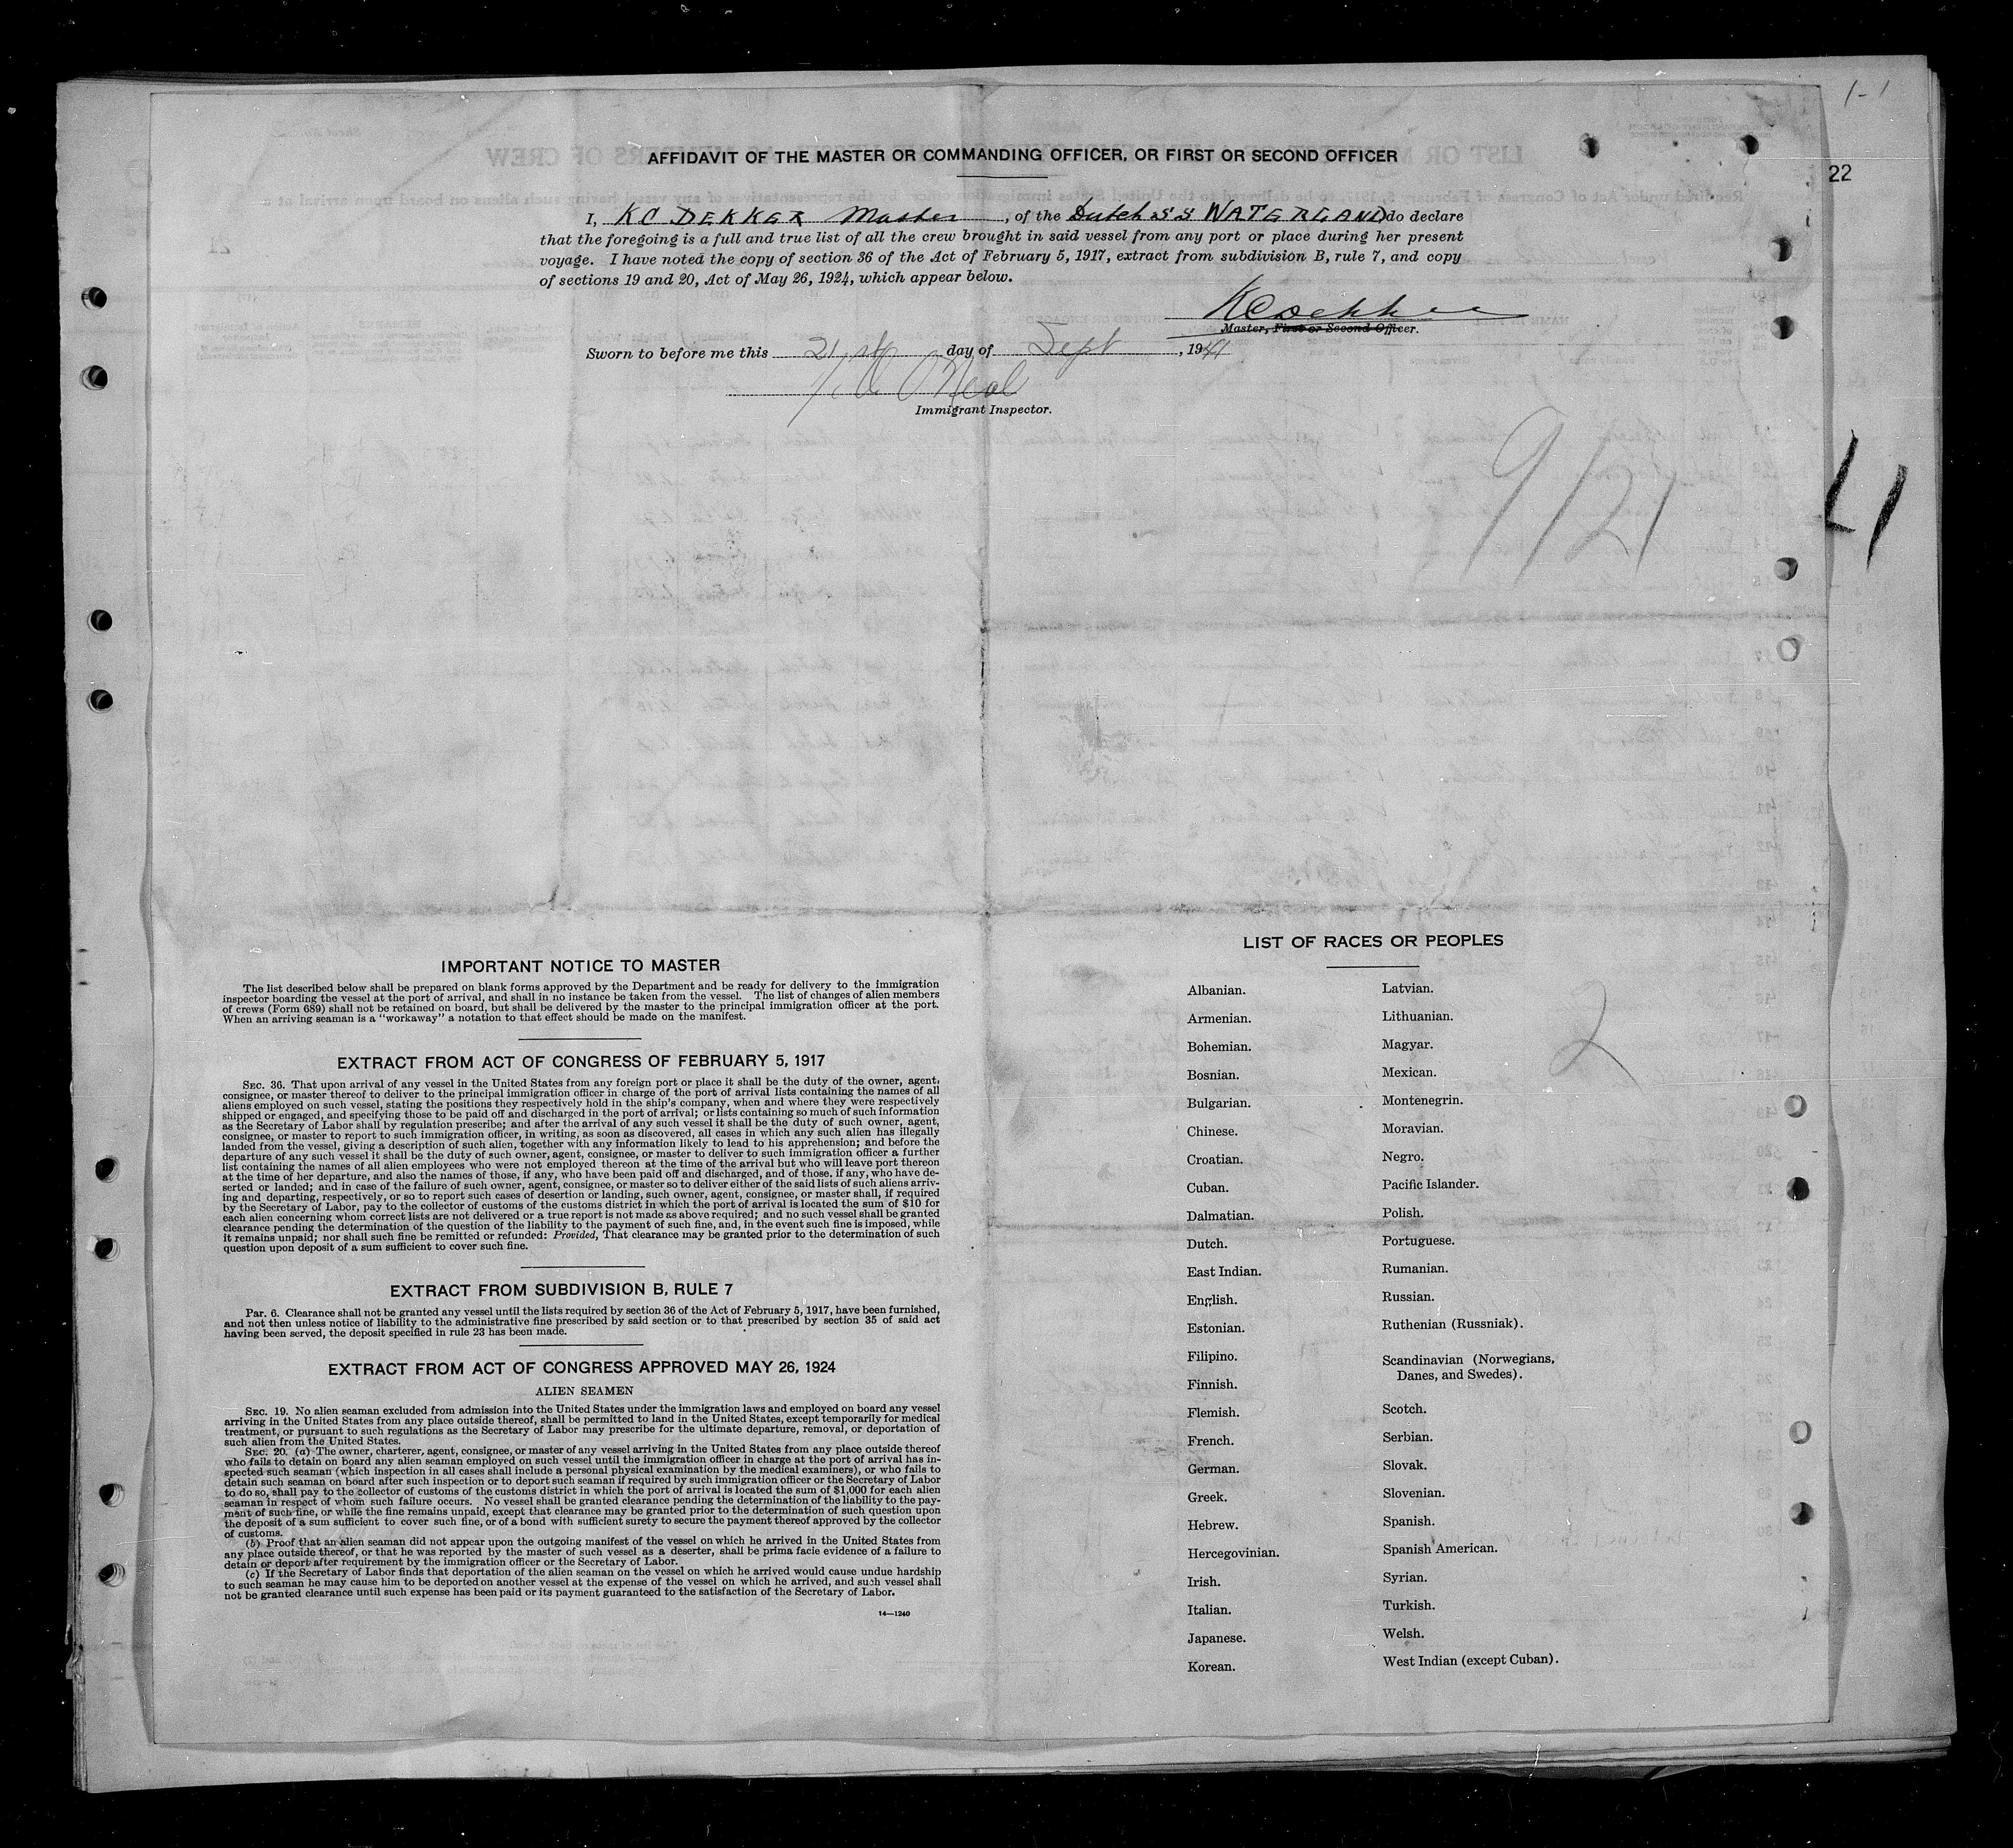 1-1
22
AFFIDAVIT OF THE MASTER OR COMMANDING OFFICER, OR FIRST OR SECOND OFFICER
I, K C DEKKER Master, of the Dutch S S WATERLAND do declare
that the foregoing is a full and true list of all the crew brought in said vessel from any port or place during her present
voyage. I have noted the copy of section 36 of the Act of February 5, 1917, extract from subdivision B, rule 7, and copy
of sections 19 and 20, Act of May 26, 1924, which appear below.
K C Dekker
Master, First or Second Officer.
Sworn to before me this 21st day of Sept, 1941
O'Neal
Immigrant Inspector.
9/21
41
IMPORTANT NOTICE TO MASTER
The list described below shall be prepared on blank forms approved by the Department and be ready for delivery to the immigration
inspector boarding the vessel at the port of arrival, and shall in no instance be taken from the vessel. The list of changes of alien members
of crews (Form 689) shall not be retained on board, but shall be delivered by the master to the principal immigration officer at the port.
When an arriving seaman is a "workaway" a notation to that effect should be made on the manifest.
EXTRACT FROM ACT OF CONGRESS OF FEBRUARY 5, 1917
SEC. 36. That upon arrival of any vessel in the United States from any foreign port or place it shall be the duty of the owner, agent,
consignee, or master thereof to deliver to the principal immigration officer in charge of the port of arrival lists containing the names of all
aliens employed on such vessel, stating the positions they respectively hold in the ship's company, when and where they were respectively
shipped or engaged, and specifying those to be paid off and discharged in the port of arrival; or lists containing so much of such information
as the Secretary of Labor shall by regulation prescribe; and after the arrival of any such vessel it shall be the duty of such owner, agent,
consignee, or master to report to such immigration officer, in writing, as soon as discovered, all cases in which any such alien has illegally
landed from the vessel, giving a description of such alien, together with any information likely to lead to his apprehension; and before the
departure of any such vessel it shall be the duty of such owner, agent, consignee, or master to deliver to such immigration officer a further
list containing the names of all alien employees who were not employed thereon at the time of the arrival but who will leave port thereon
at the time of her departure, and also the names of those, if any, who have been paid off and discharged, and of those. if any, who have de-
serted or landed; and in case of the failure of such owner, agent, consignee, or master so to deliver either of the said lists of such aliens arriv-
ing and departing, respectively, or so to report such cases of desertion or landing, such owner, agent, consignee, or master shall, if required
by the Secretary of Labor, pay to the collector of customs of the customs district in which the port of arrival is located the sum of $10 for
each alien concerning whom correct lists are not delivered or a true report is not made as above required; and no such vessel shall be granted
clearance pending the determination of the question of the liability to the payment of such fine, and, in the event such fine is imposed, while
it remains unpaid; nor shall such fine be remitted or refunded: Provided, That clearance may be granted prior to the determination of such
question upon deposit of a sum sufficient to cover such fine.
EXTRACT FROM SUBDIVISION B, RULE 7
Par. 6. Clearance shall not be granted any vessel until the lists required by section 36 of the Act of February 5, 1917, have been furnished,
and not then unless notice of liability to the administrative fine prescribed by said section or to that prescribed by section 35 of said act
having been served, the deposit specified in rule 23 has been made.
EXTRACT FROM ACT OF CONGRESS APPROVED MAY 26, 1924
ALIEN SEAMEN
SEC. 19. No alien seaman excluded from admission into the United States under the immigration laws and employed on board any vessel
arriving in the United States from any place outside thereof, shall be permitted to land in the United States, except temporarily for medical
treatment, or pursuant to such regulations as the Secretary of Labor may prescribe for the ultimate departure, removal, or deportation of
such alien from the United States.
SEC. 20. (a) The owner, charterer, agent, consignee, or master of any vessel arriving in the United States from any place outside thereof
who fails to detain on board any alien seaman employed on such vessel until the immigration officer in charge at the port of arrival has in-
spected such seaman (which inspection in all cases shall include a personal physical examination by the medical examiners), or who fails to
detain such seaman on board after such inspection or to deport such seaman if required by such immigration officer or the Secretary of Labor
to do so, shall pay to the collector of customs of the customs district in which the port of arrival is located the sum of $1,000 for each alien
seaman in respect of whom such failure occurs. No vessel shall be granted clearance pending the determination of the liability to the pay-
ment of such fine, or while the fine remains unpaid, except that clearance may be granted prior to the determination of such question upon
the deposit of a sum sufficient to cover such fine, or of a bond with sufficient surety to secure the payment thereof approved by the collector
of customs.
(b) Proof that an alien seaman did not appear upon the outgoing manifest of the vessel on which he arrived in the United States from
any place outside thereof, or that he was reported by the master of such vessel as a deserter, shall be prima facie evidence of a failure to
detain or deport after requirement by the immigration officer or the Secretary of Labor.
(c) If the Secretary of Labor finds that deportation of the alien seaman on the vessel on which he arrived would cause undue hardship
to such seaman he may cause him to be deported on another vessel at the expense of the vessel on which he arrived, and such vessel shall
not be granted clearance until such expense has been paid or its payment guaranteed to the satisfaction of the Secretary of Labor.
14—1240
LIST OF RACES OR PEOPLES
Albanian.
Armenian.
Bohemian.
Bosnian.
Bulgarian.
Chinese.
Croatian.
Cuban.
Dalmatian.
Dutch.
East Indian.
English.
Estonian.
Filipino.
Finnish.
Flemish.
French.
German.
Greek.
Hebrew.
Hercegovinian.
Irish.
Italian.
Japanese.
Korean.
Latvian.
Lithuanian.
Magyar.
Mexican.
Montenegrin.
Moravian.
Negro.
Pacific Islander.
Polish.
Portuguese.
Rumanian.
Russian.
Ruthenian (Russniak).
Scandinavian (Norwegians,
Danes, and Swedes).
Scotch.
Serbian.
Slovak.
Slovenian.
Spanish.
Spanish American.
Syrian.
Turkish.
Welsh.
West Indian (except Cuban).
2